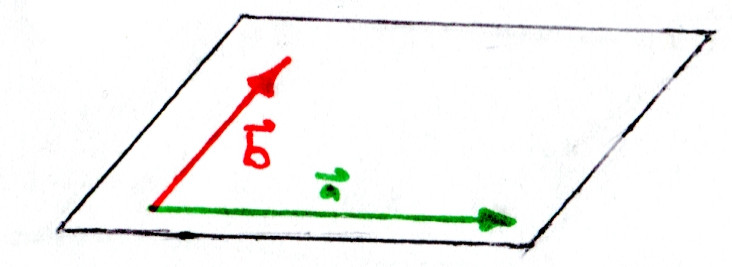 b⃗
a⃗